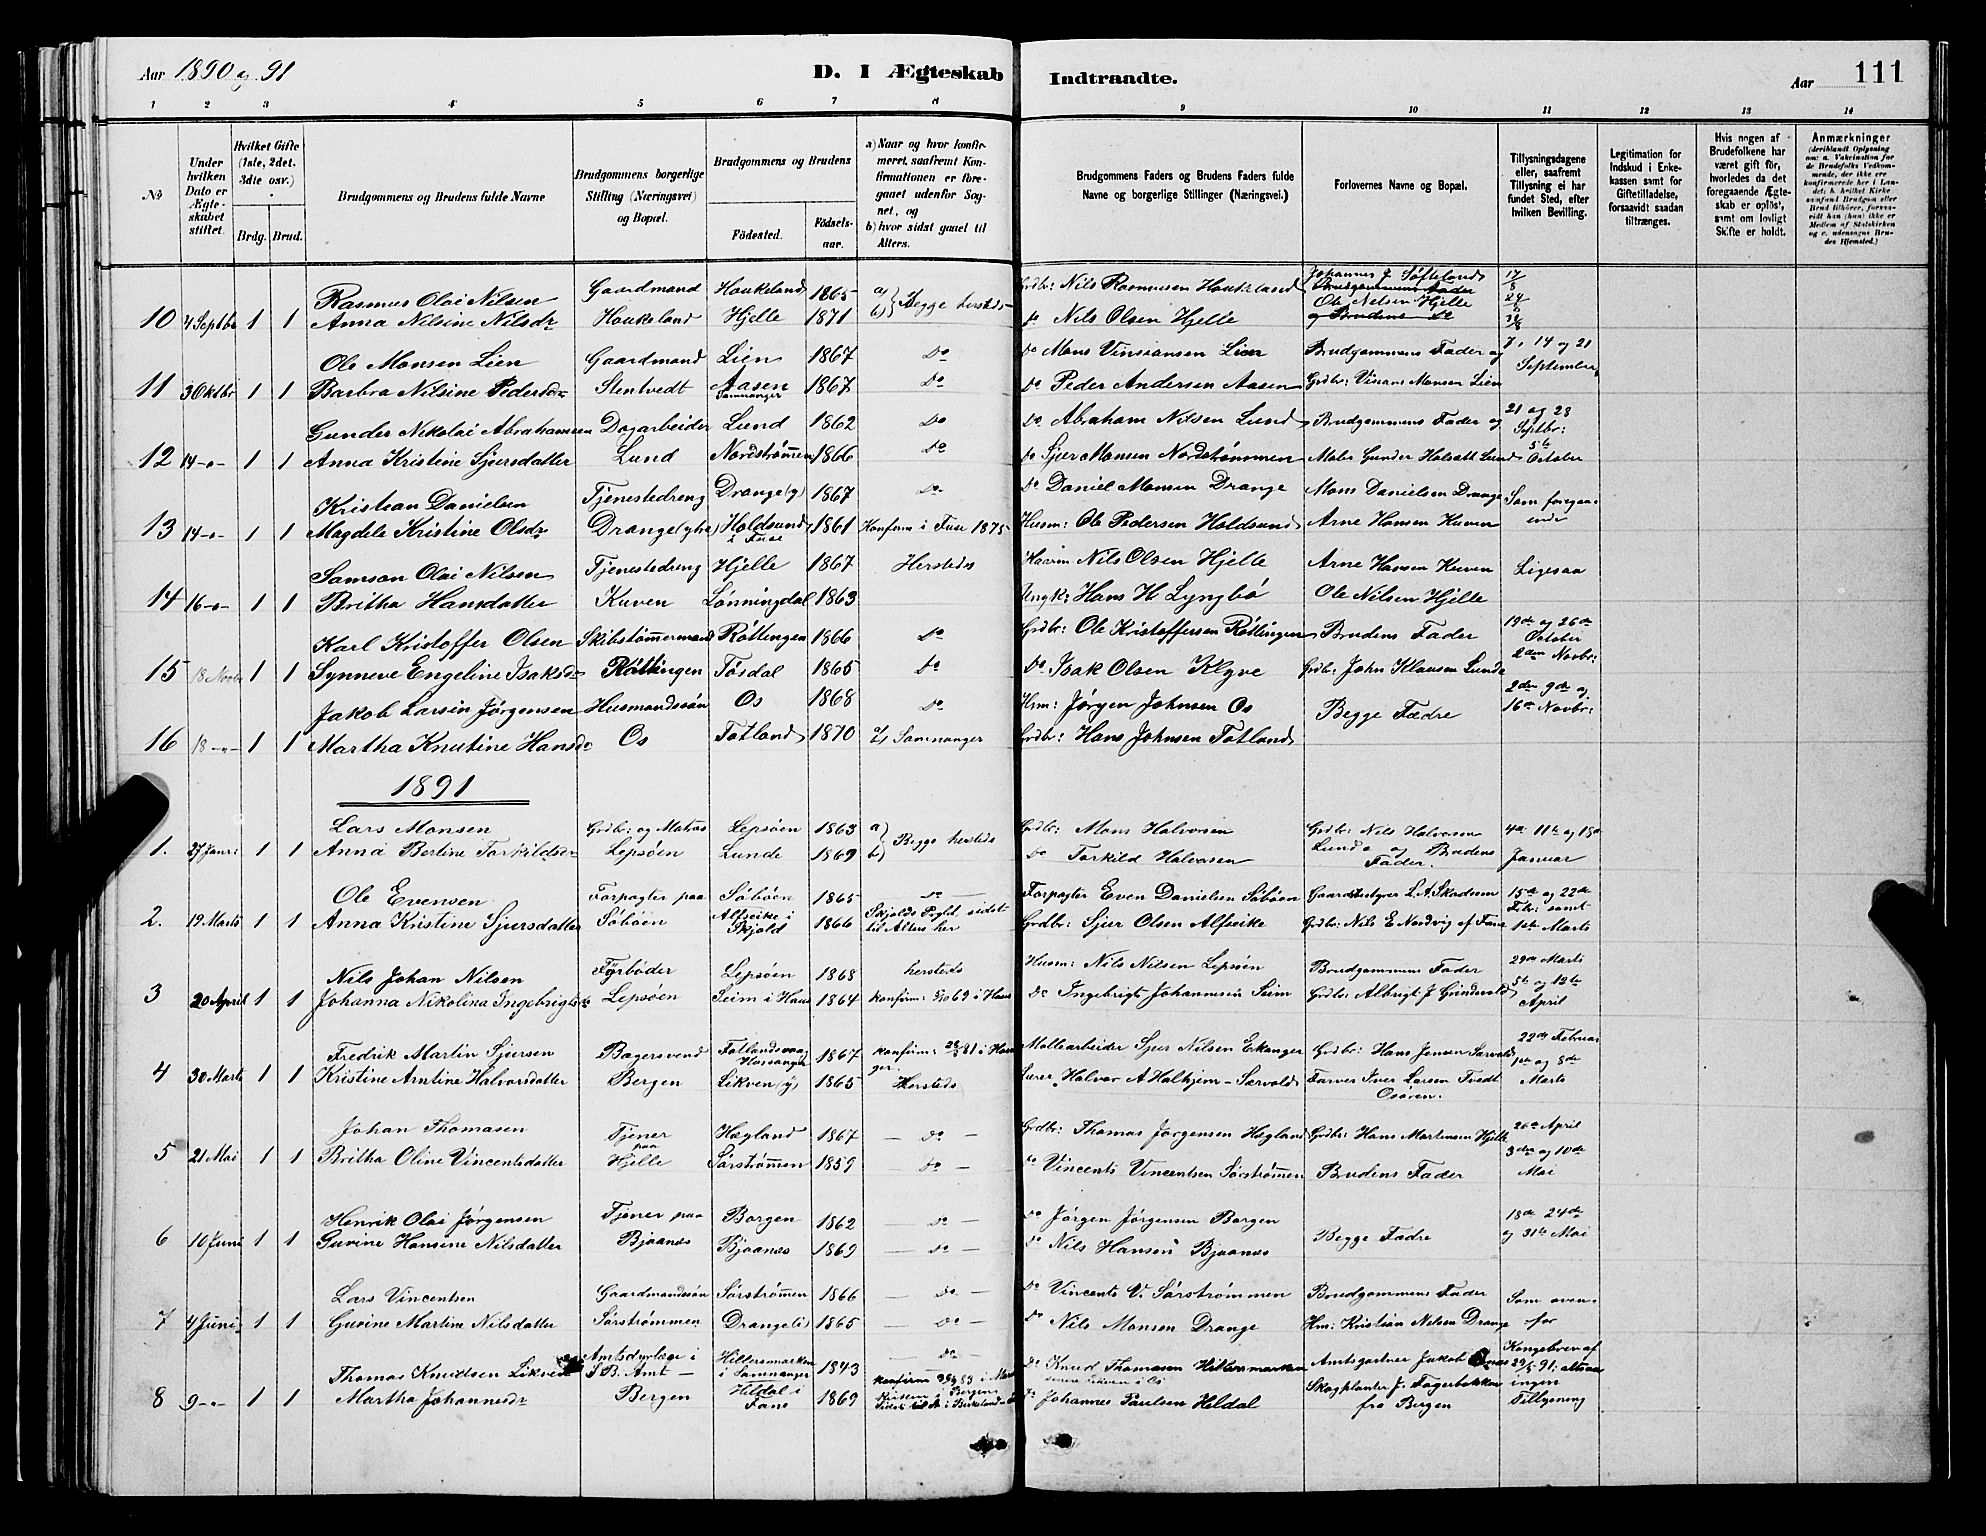 Aar 1890 og 91
D. I Ægteskab Indtraadte.
Aar 111
1 2 3 4 5 6 7 8 9 10 11 12 13 14
No
Under hvilken Dato er Ægteskabet stiftet.
Hvilket Gifte (1ste, 2det, 3die osv.)
Brdg. Brud.
Brudgommens og Brudens fulde Navne
Brudgommens borgerlige Stilling (Næringsvei) og Bopæl.
Brudgommens og Brudens
Fødested.
Fødselsaar.
a) Naar og hvor konfirmeret, saafremt Konfirmationen er foregaaet udenfor Sognet, og
b) hvor sidst gaaet til Alters.
Brudgommens Faders og Brudens Faders fulde Navne og borgerlige Stillinger (Næringsvei.)
Forlovernes Navne og Bopæl.
Tillysningsdagene eller, saafremt Tillysning ei har fundet Sted, efter hvilken Bevilling.
Legitimation for Indskud i Enkekassen samt for Giftetilladelse, forsaavidt saadan tiltrænges.
Hvis nogen af Brudefolkene har været gift før, hvorledes da det foregaaende Ægteskab er opløst, samt om lovligt Skifte er holdt.
Anmærkninger
(deriblandt Oplysning om: a. Vakcination for de Brudefolks Vedkommende, der ikke ere konfirmerede her i Landet; b. hvilket Kirkesamfund Brudgom eller Brud tilhører, forsaavidt han (hun) ikke er Medlem af Statskirken og c. udensogns Brudes Hjemsted.)
Rasmus Olai Nilsen Gaardmand Haukeland 1865 a) Grdbr: Nils Rasmussen Haukeland Johannes J. Søfteland 17/8
10 4 Septbr 1 1 Anna Nilsine Nilsdr Haukeland Hjelle 1871 b) Begge hersteds Do Nils Olsen Hjelle Ole Nilsen Hjelle 24/8 31/8
Ole Monsen Lien Gaardmand Lien 1867 Do Do Mons Vinsiansen Lien Brudgommens Fader og 7, 14 og 21
11 3 Oktbr 1 1 Barbra Nilsine Pedersdr Stentvedt Aasen Samnanger 1867 Do Do Peder Andersen Aasen Grdbr: Vinsans Monsen Lien September
Gunder Nikolai Abrahamsen Dagarbeider Lund 1862 Do Do Abraham Nilsen Lund Brudgommens Fader og 21 og 28 Septbr:
12 14-o- 1 1 Anna Kristine Sjursdatter Lund Nordstrømmen 1866 Do Do Sjur Monsen Nordstrømmen Maler Gunder Lund 5te October
Kristian Danielsen Tjenestedreng Drange (y) 1867 Do Do Daniel Monsen Drange Mons Danielsen Drange Som foregaaende
13 14-o- 1 1 Magdele Kristine Olsdr Drange (ytre) Holdsund i Fuse 1861 Konfirm i Fuse 1875 Husm: Ole Pedersen Holdsund Arne Hansen Kuven
Samson Olai Nilsen Tjenestedreng Hjelle 1867 Hersteds Nils Olsen Hjelle Arne Hansen Kuven Ligesaa
14 16-o- 1 1 Britha Hansdatter Kuven Lønningdal 1863 Ungk: Hans H Lyngbø Ole Nilsen Hjelle
Karl Kristoffer Olsen Skibstømmermand Røttingen 1866 Do Grdbr: Ole Kristoffersen Røttingen Brudens Fader 19de og 26de October
15 18 Novbr 1 1 Synneve Engeline Isaksdr Røttingen Tøsdal 1865 Do Do Isak Olsen Klyve Grdbr: John Klausen Lunde 2den Novbr:
Jakob Larsin Jørgensen Husmandssøn Os 1868 Do Hsm: Jørgen Johnsen Os Begge Fædre 2den 9de og
16 18-o- 1 1 Martha Knutine Hansdr Os Totland 1870 b) Samnanger Grdbr: Hans Johnsen Totland 16de Novbr:
1891
Lars Monsen Grdbr: og Matros Lepsøen 1863 a) Grdbr: Mons Halvorsen Grdbr: Nils Halvorsen 4de 11te og 18de
1. 27 Januar 1 1 Anna Bertine Torkildsdr Lepsøen Lunde 1869 b) Begge hersteds Do Torkild Halvorsen Lunde og Brudens Fader. Januar
Ole Evensen Forpagter paa Søbøen 1865 Do Forpagter Even Danielsen Søbøen Gaardbestyrer L. A. Skadsem 15de og 22de
2. 19 Marts 1 1 Anna Kristine Sjursdatter Søbøen Alfseike i Skjold 1866 Skjolds Prgld. sidst til Alters her Grdbr: Sjur Olsen Alfseike Grdbr: Nils E Nordvig af Fane Febr: samt 1ste Marts
Nils Johan Nilsen Fyrbøder Lepsøen 1868 hersteds Husm: Nils Nilsen Lepsøen Brudgommens Fader 29de Marts
3 20 April 1 1 Johanna Nikolina Ingebrigtsdr Lepsøen Seim i Haus 1864 Do Ingebrigt Johannesen Seim Grdbr: Albrigt J Grindevold 5te og 12te April
Fredrik Martin Sjursen Bagersvend Totlandsvaag Hosanger 1867 konfirm: i Hosanger. Møllearbeider Sjur Nilsen Erkanger Grdbr: Hans Jensen Sørvold 22de Februar
4 30 Marts 1 1 Kristine Arntine Halvorsdatter Bergen Likven (y) 1865 Hersteds Lærer Halvor A Halhjem - Sørvold Farver Iver Larsen Tvedt Osøren. 1ste og 8de Marts
Johan Thomasen Tjener paa Hegland 1867 Do Grdbr: Thomas Jørgensen Hegland Grdbr: Hans Martensen Hjelle 26de April
5 21 Mai 1 1 Britha Oline Vincentsdatter Hjelle Sørstrømmen 1859 Do Do Vincents Vincentsen Sørstrømmen Brudens Fader 3die og 10de Mai
Henrik Olai Jørgensen Tjener paa Borgen 1862 Do Do Jørgen Jørgensen Borgen Begge Fædre 18de 24de
6 10 Juni 1 1 Guvine Hansine Nilsdatter Bjaanes Bjaanes 1869 Do Do Nils Hansen Bjaanes og 31te Mai
Lars Vincentsen Gaardmandssøn Sørstrømmen 1866 Do Do Vincents V. Sørstrømmen Brudgommens Fader Som oven-
7 4 Juni 1 1 Guvine Martine Nilsdatter Sørstrømmen Drange (i) 1865 Do Do Nils Monsen Drange Hm: Kristian Nilsen Drange for
Thomas Knudsen Likven Amtsdyrlæge i S. B. Amt - Hillersmarken i Samnanger 1843 Do Do Knud Thomasen Hillersmarken Amtsgartner Jakob Kongebrev af 29/5 91: altsaa
8 9-o- 1 1 Martha Johannesdr Bergen Hildal i Fane 1869 konfirm i Bergen Do Johannes Paulsen Hildal Skogplanter J. Fagerbakken fra Bergen ingen Tillysning